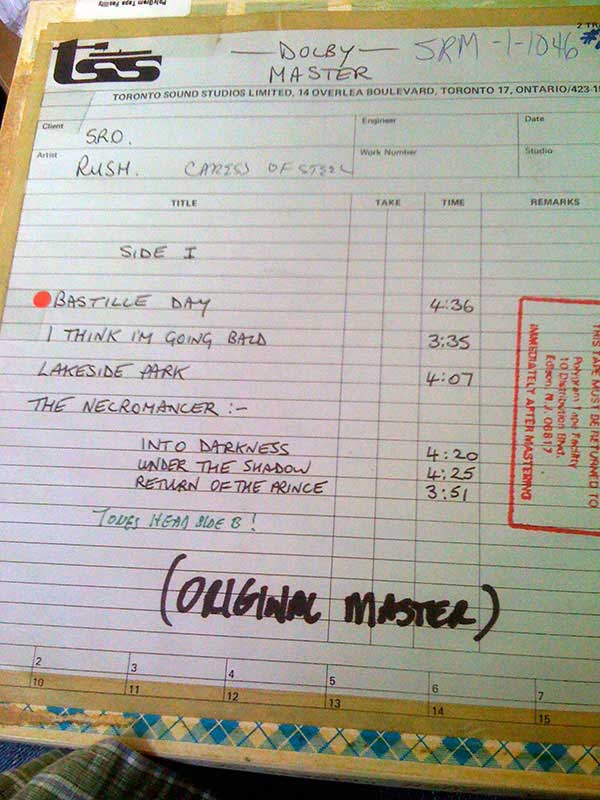 Polygram Tape Facility
2 TR
tss
— DOLBY — SRM-1-1046 #
MASTER
TORONTO SOUND STUDIOS LIMITED, 14 OVERLEA BOULEVARD, TORONTO 17, ONTARIO/423-1
Client SRO. Engineer Date
Artist RUSH. CARESS OF STEEL Work Number Studio
TITLE TAKE TIME REMARKS
SIDE I
BASTILLE DAY 4:36
I THINK I'M GOING BALD 3:35
LAKESIDE PARK 4:07
THE NECROMANCER :-
INTO DARKNESS 4:20
UNDER THE SHADOW 4:25
RETURN OF THE PRINCE 3:51
TONES HEAD SIDE B!
THIS TAPE MUST BE RETURNED TO
Polygram Tape Facility
10 Distribution Blvd.
Edison, N.J. 08817
IMMEDIATELY AFTER MASTERING
(ORIGINAL MASTER)
2 3 4 5 6 7
10 11 12 13 14 15